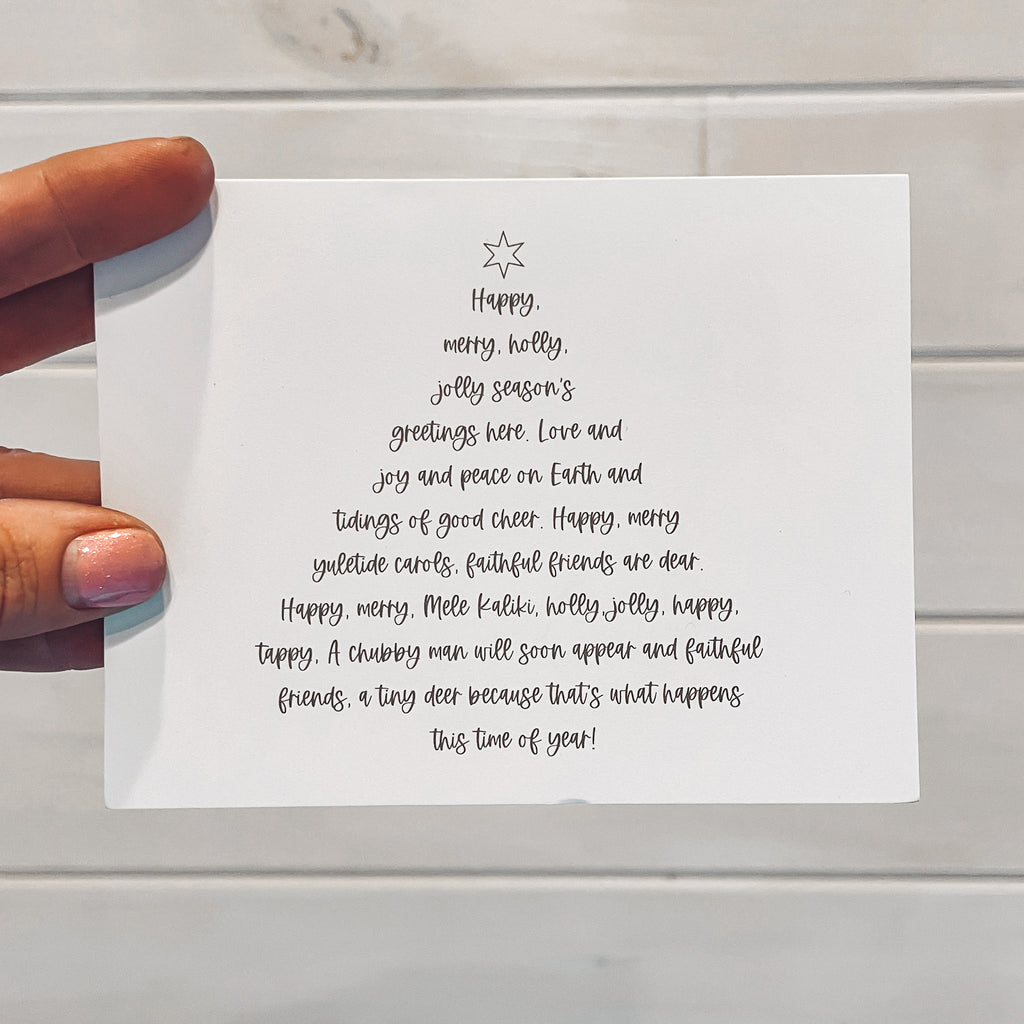 Happy,
merry, holly,
jolly season's
greetings here. Love and
joy and peace on Earth and
tidings of good cheer. Happy, merry
yuletide carols, faithful friends are dear.
Happy, merry, Mele Kaliki, holly, jolly, happy,
tappy, A chubby man will soon appear and faithful
friends, a tiny deer because that's what happens
this time of year!